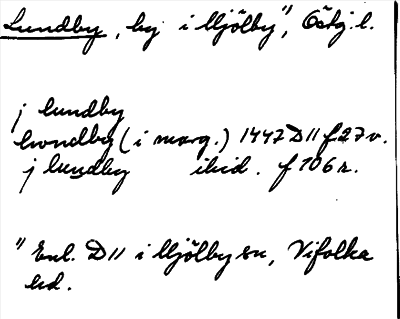 Lundby, by i Mjölby¹⁾, Östg l.
j lundby
lwndby (i marg.) 1447 D 11 f 27 v.
j lundby ibid. f 106 r.
¹⁾ Enl. D 11 i Mjölby sn, Vifolka
hd.